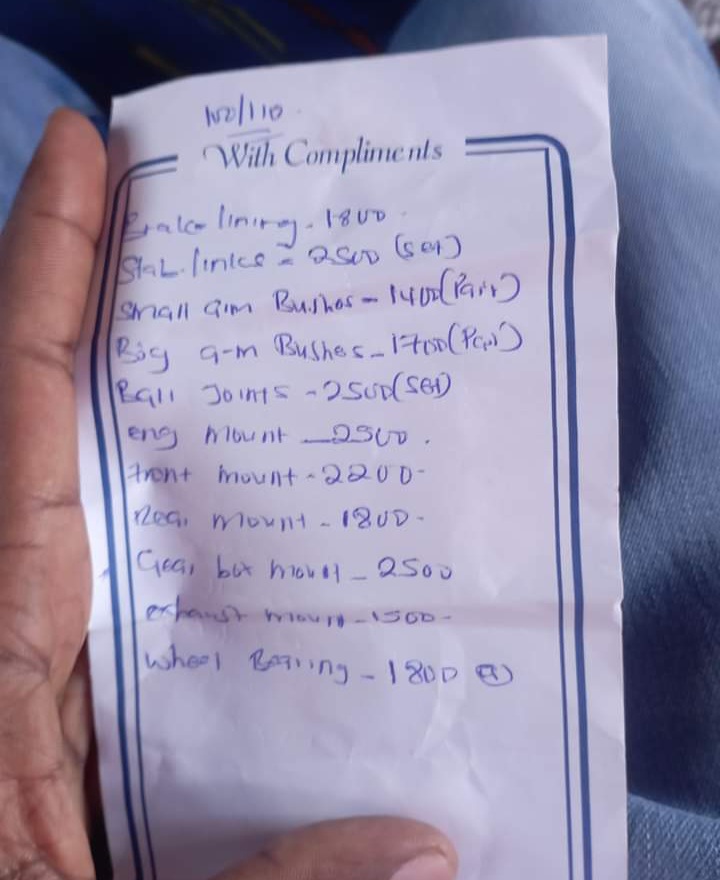 100/110
With Compliments
Brake lining - 1800
Stab. links = 2500 (set)
Small arm Bushes - 1400 (Pair)
Big arm Bushes - 1700 (Pair)
Ball Joints - 2500 (Set)
eng mount - 2500.
front mount - 2200-
Rear mount - 1800-
Gear box mount - 2500
exhaust mount - 1500-
Wheel Bearing - 1800